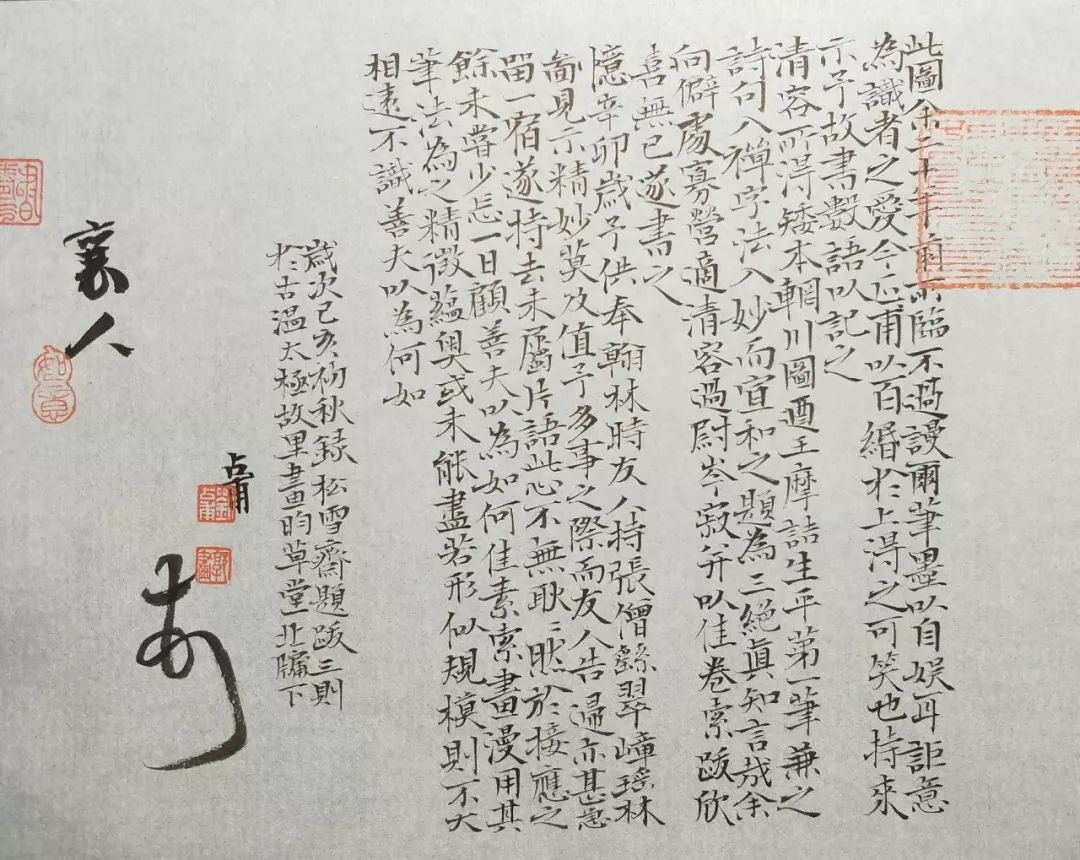 此圖余二十年前所臨不過謾爾筆墨以自娱耳詎意
為識者之愛今正甫以百緡於上得之可笑也持來
示予故書數語以記之
清容所得矮本輞川圖迺王摩詰生平第一筆兼之
詩句入禪字法入妙而宣和之題為三絕真知言哉余
向僻處寡營適清容過尉岑寂并以佳卷索跋欣
喜無已遂書之
憶辛卯歲予供奉翰林時友人持張僧繇翠嶂瑶林
圖見示精妙莫及值予多事之際而友人告逼亦甚急
留一宿遂持去未屬片語此心不無耿耿然於接應之
餘未嘗少忘一日顧善夫以為如何佳素索畫漫用其
筆法為之精微蘊奥或未能盡若形似規模則不大
相遠不識善夫以為何如
歲次己亥初秋録松雪齋題跋三則
於古温太極故里畫昀草堂北牖下
占甫
襄人
如意